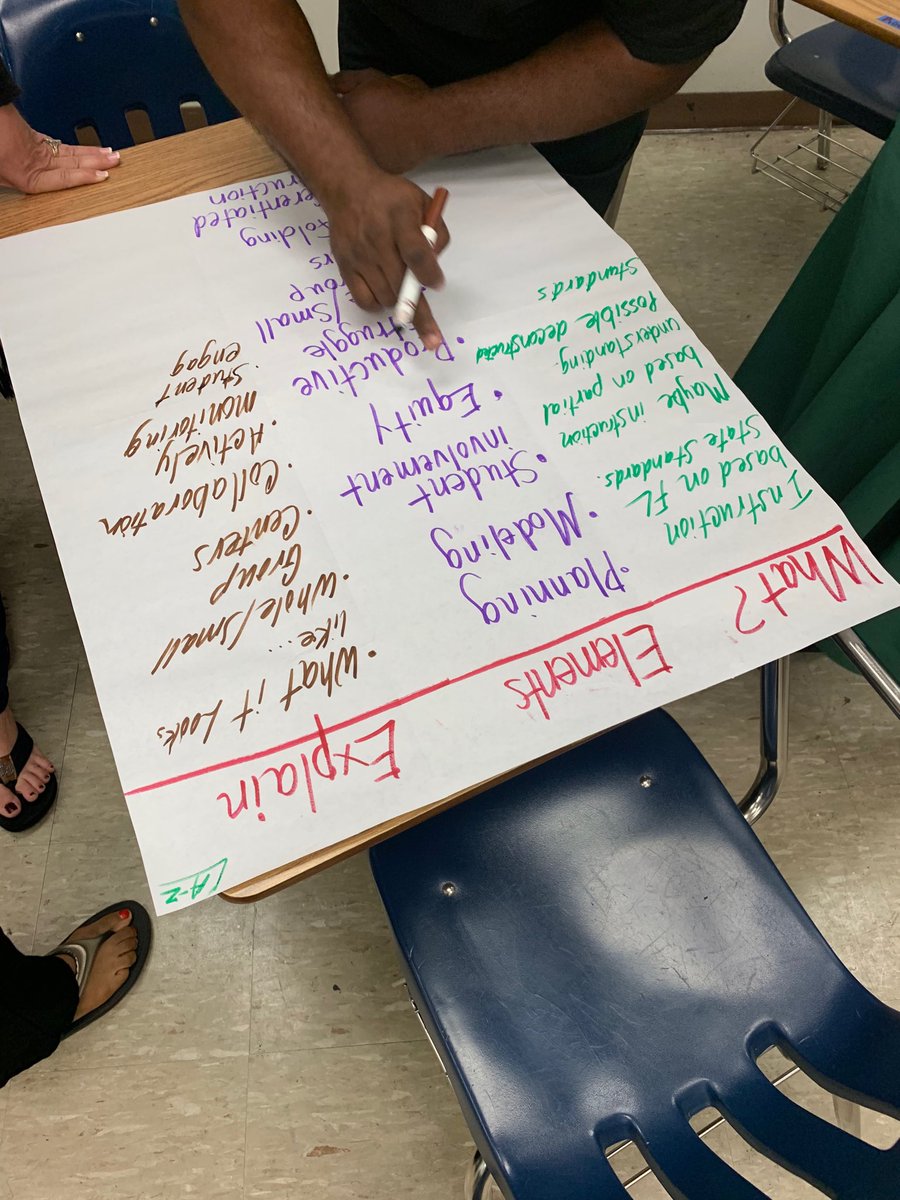 What?
Elements
Explain
Instruction
based on FL
State Standards.
Maybe instruction
based on partial
understanding.
Possible deconstructed
standards
• Planning
• Modeling
• Student
involvement
• Equity
• Productive
struggle
/small
group
folding
erentiated
ruction
• What it Looks
like...
• Whole/small
Group
• Centers
• Collaboration
• Actively
monitoring
• Student
engag
A-Z